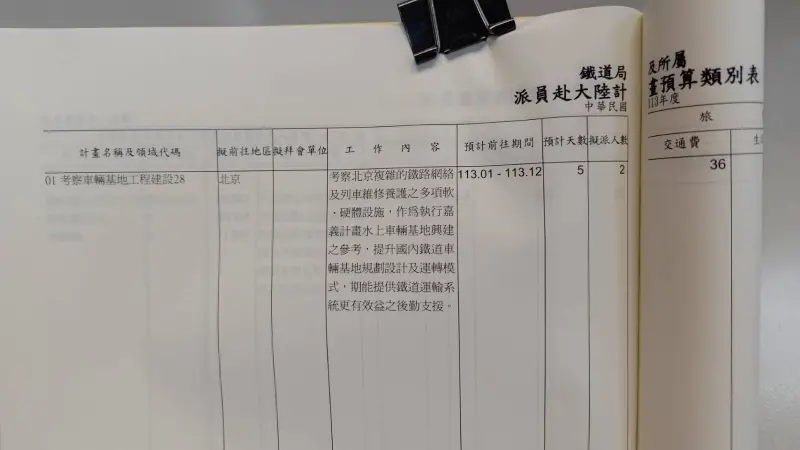 鐵道局
派員赴大陸計
中華民國
計畫名稱及領域代碼 擬前往地區 擬拜會單位 工作內容 預計前往期間 預計天數 擬派人數
01 考察車輛基地工程建設28 北京 考察北京複雜的鐵路網絡 113.01 - 113.12 5 2
及列車維修養護之多項軟
、硬體設施，作為執行嘉
義計畫水上車輛基地興建
之參考，提升國內鐵道車
輛基地規劃設計及運轉模
式，期能提供鐵道運輸系
統更有效益之後勤支援。
及所屬
畫預算類別表
113年度
旅
交通費
36